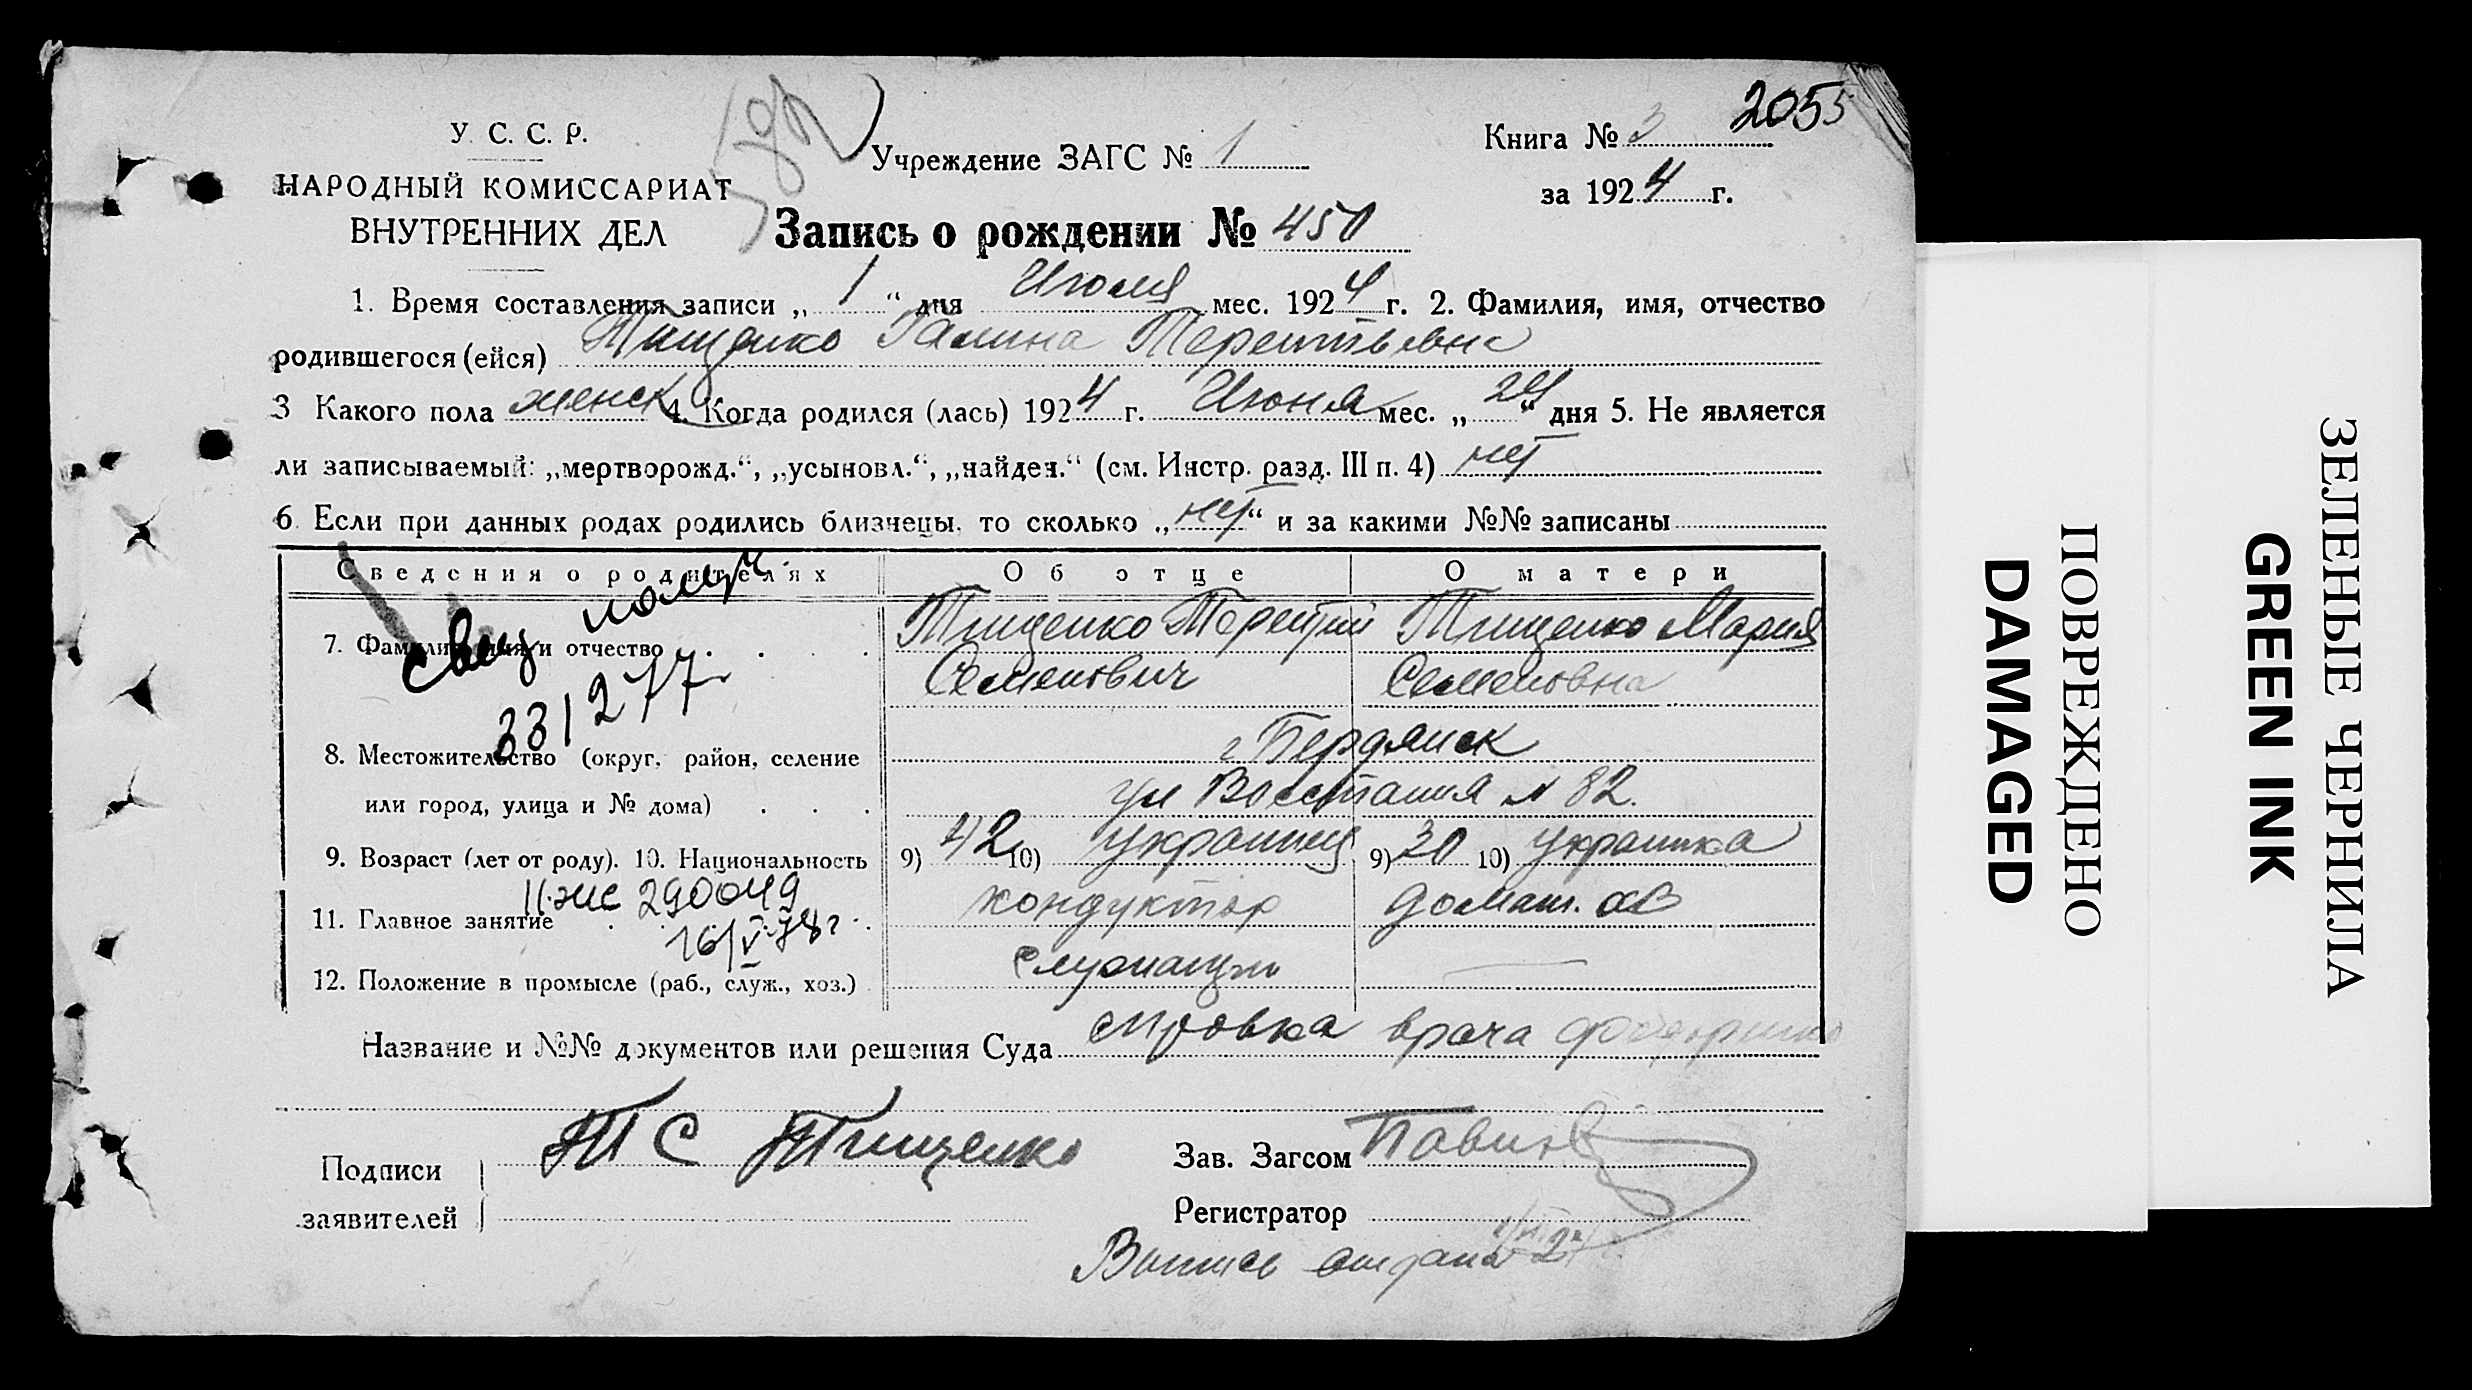 2055
582
У. С. С. Р.
НАРОДНЫЙ КОМИССАРИАТ
ВНУТРЕННИХ ДЕЛ
Учреждение ЗАГС № 1
Книга № 3
за 1924 г.
Запись о рождении № 450
1. Время составления записи „ 1 “ дня Июля мес. 1924 г. 2. Фамилия, имя, отчество
родившегося (ейся) Тищенко Галина Терентьевна
3 Какого пола женск 4. Когда родился (лась) 1924 г. Июня мес. „ 24 “ дня 5. Не является
ли записываемый: „мертворожд.“, „усыновл.“, „найден.“ (см. Инстр. разд. III п. 4) нет
6. Если при данных родах родились близнецы, то сколько „ нет “ и за какими №№ записаны
Сведения о родителях Об отце О матери
7. Фамилия, имя и отчество Тищенко Терентий Тищенко Мария
Семенович Семеновна
331277
8. Местожительство (округ, район, селение г Бердянск
или город, улица и № дома) ул Восстания № 82.
9. Возраст (лет от роду). 10. Национальность 9) 42 10) украинец 9) 30 10) украинка
11. Главное занятие кондуктор домаш. хоз
II-жс 290049
16/V-78г.
12. Положение в промысле (раб., служ., хоз.) служащий —
Название и №№ документов или решения Суда справка врача
Подписи заявителей Т С Тищенко
Зав. Загсом
Регистратор
ПОВРЕЖДЕНО
DAMAGED
ЗЕЛЕНЫЕ ЧЕРНИЛА
GREEN INK